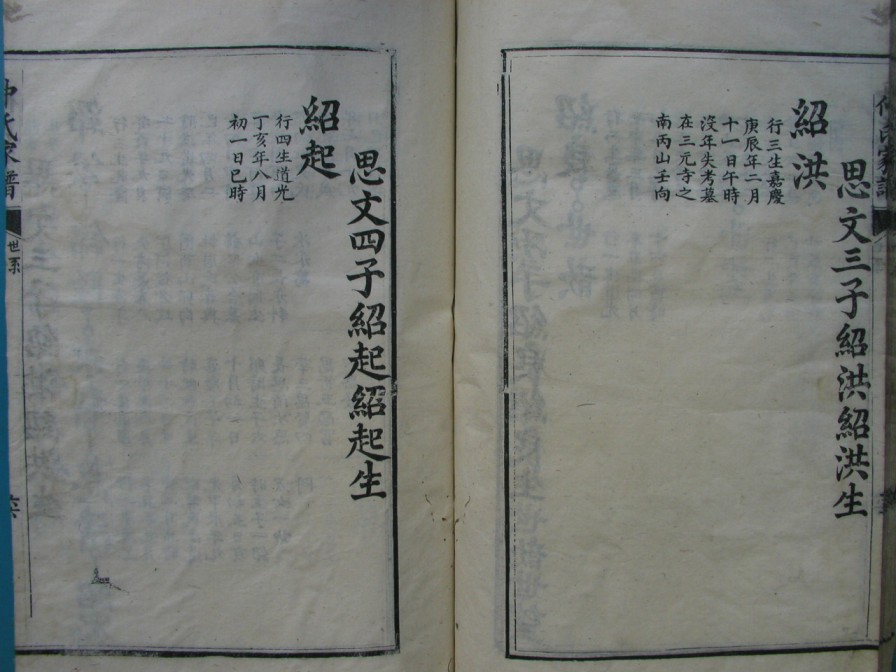 思文三子紹洪紹洪生
紹洪
行三生嘉慶
庚辰年二月
十一日午時
沒年失考墓
在三元寺之
南丙山壬向
思文四子紹起紹起生
紹起
行四生道光
丁亥年八月
初一日巳時
氏家譜
世系